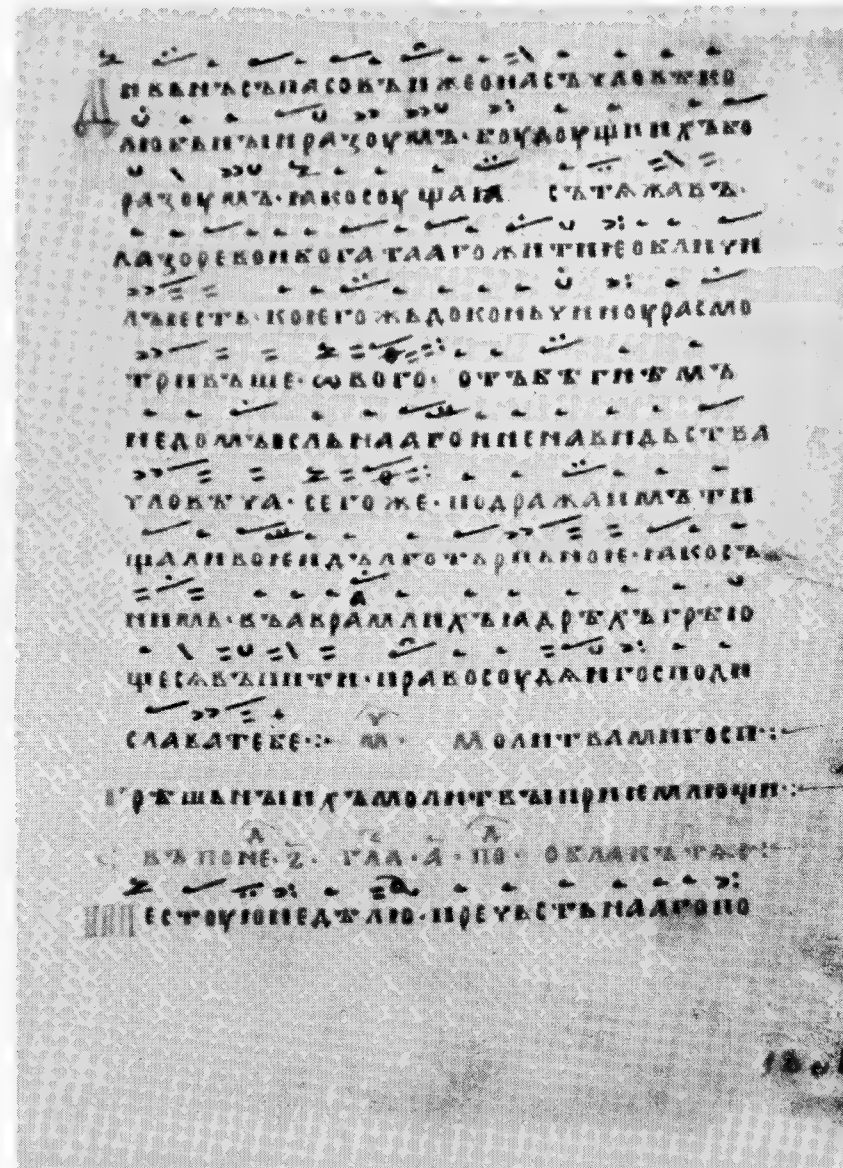 ДИВЬНЪСЪПАСОВЪИЖЕОНАСЪЧЛОВѢКО
ЛЮБЬНЫИРАЗОУМЪ·БОУДОУЩИИХЪБО
РАЗОУМЪ·ꙖКОСОУЩАꙖ СЪТѦЖАВЪ·
ЛАЗОРЕВОИБОГАТААГОЖИТИѤОБЛИЧИ
ЛЪѤСТЬ·КОѤГОЖЬДОКОНЬЧИНОУРАСМО
ТРИВЪШЕ·ѠВОГО·ОТЪБѢГНѢМЪ
НЕДОМЫСЛЬНААГОИНЕНАВИДЬСТВА
ЧЛОВѢЧА·СЕГОЖЕ·ПОДРАЖАИМЪТИ
ЩАЛИВОѤИДЪЛГОТЬРПЬНОѤ·ꙖКОСЪ
НИМЬ·ВЪАВРАМЛИХЪꙖДРѢХЪГРѢЮ
ЩЕСѦВЪПИТИ·ПРАВОСОУДѦИГОСПОДИ
СЛАВАТЕБЕ·:· М Ч · МОЛИТВАМИГОСП·:
ГРѢШЬНЫИХЪМОЛИТВЫПРИѤМЛЮЩИ·:
ВЪПОНЕ Д · Ꙁ · ГЛА С · А · ПО Д · ОБЛАКЪТѦ Е·:
ШЕСТОУЮНЕДѢЛЮ·ПРЕЧЬСТЬНААГОПО